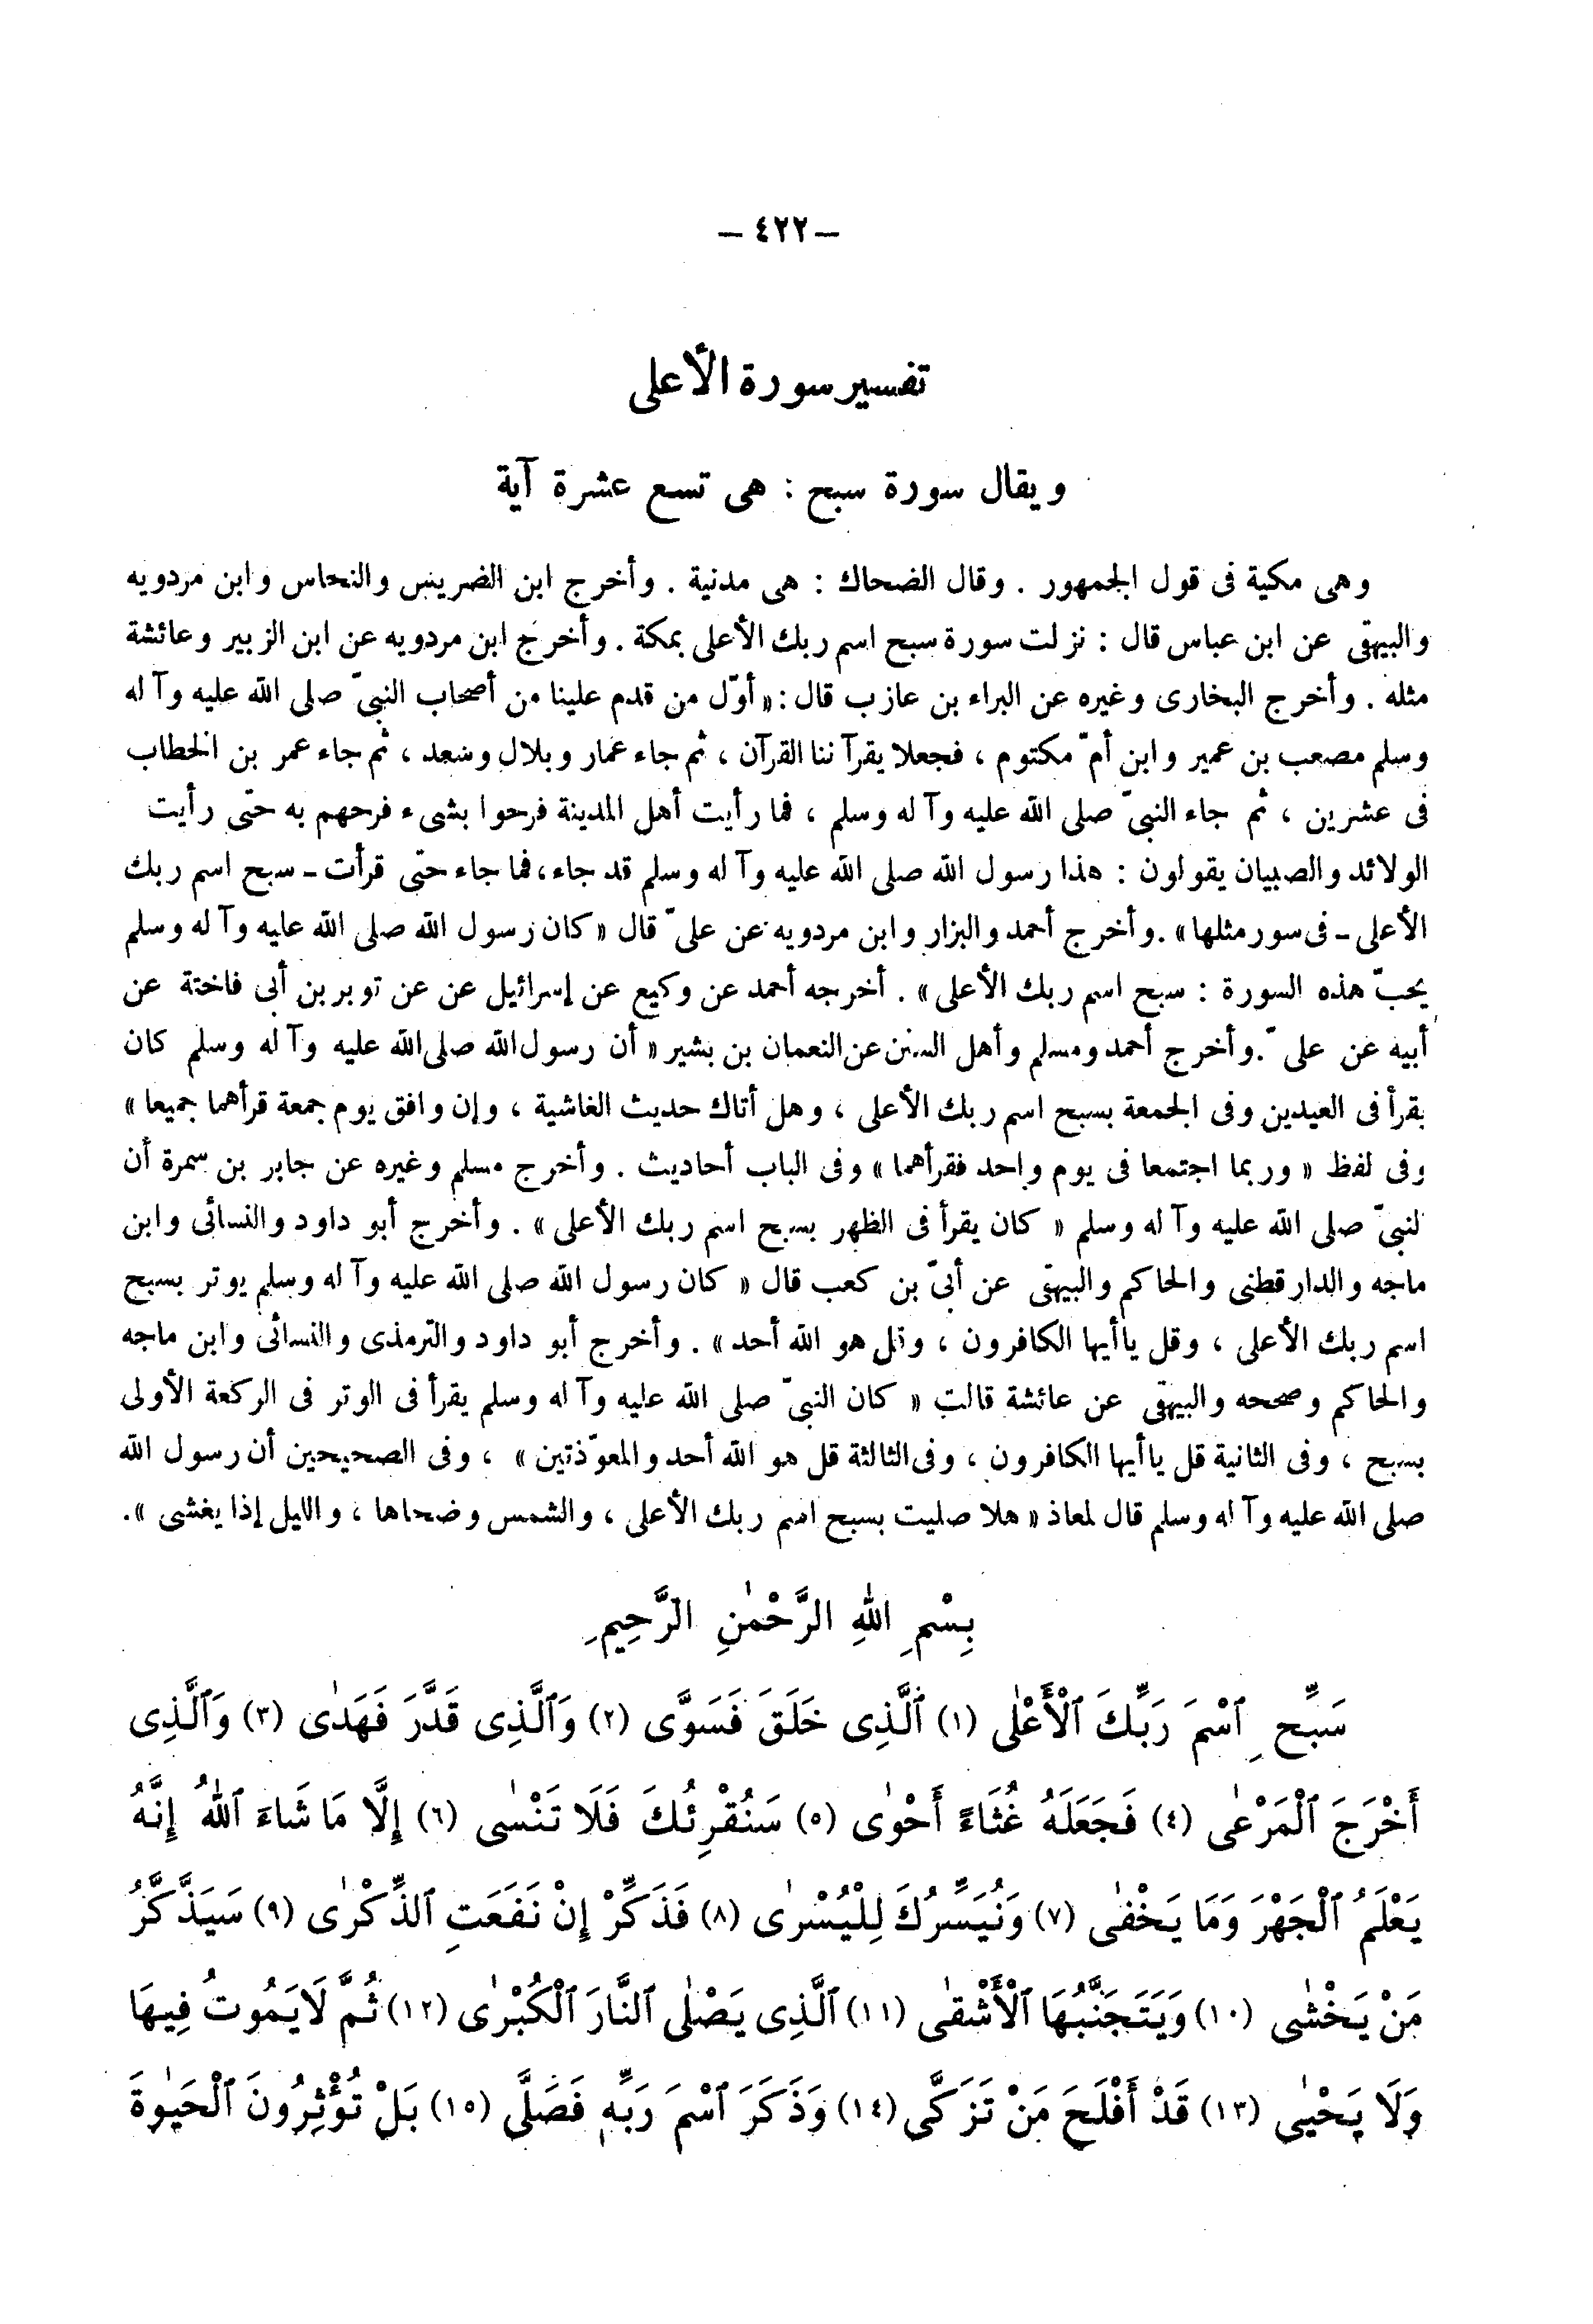 — ٤٢٢ —
تفسير سورة الأعلى
ويقال سورة سبح : هى تسع عشرة آية
وهى مكية فى قول الجمهور . وقال الضحاك : هى مدنية . وأخرج ابن الضريس والنحاس وابن مردويه
والبيهقى عن ابن عباس قال : نزلت سورة سبح اسم ربك الأعلى بمكة . وأخرج ابن مردويه عن ابن الزبير وعائشة
مثله . وأخرج البخارى وغيره عن البراء بن عازب قال : « أوّل من قدم علينا من أصحاب النبىّ صلى الله عليه وآله
وسلم مصعب بن عمير وابن أمّ مكتوم ، فجعلا يقرآننا القرآن ، ثم جاء عمار وبلال وسعد ، ثم جاء عمر بن الخطاب
فى عشرين ، ثم جاء النبىّ صلى الله عليه وآله وسلم ، فما رأيت أهل المدينة فرحوا بشىء فرحهم به حتى رأيت
الولائد والصبيان يقولون : هذا رسول الله صلى الله عليه وآله وسلم قد جاء ، فما جاء حتى قرأت ـ سبح اسم ربك
الأعلى ـ فى سور مثلها » . وأخرج أحمد والبزار وابن مردويه عن علىّ قال « كان رسول الله صلى الله عليه وآله وسلم
يحبّ هذه السورة : سبح اسم ربك الأعلى » . أخرجه أحمد عن وكيع عن إسرائيل عن عن توبر بن أبى فاختة عن
أبيه عن علىّ . وأخرج أحمد ومسلم وأهل السنن عن النعمان بن بشير « أن رسول الله صلى الله عليه وآله وسلم كان
يقرأ فى العيدين وفى الجمعة بسبح اسم ربك الأعلى ، وهل أتاك حديث الغاشية ، وإن وافق يوم جمعة قرأهما جميعا »
وفى لفظ « وربما اجتمعا فى يوم واحد فقرأهما » وفى الباب أحاديث . وأخرج مسلم وغيره عن جابر بن سمرة أن
لنبىّ صلى الله عليه وآله وسلم « كان يقرأ فى الظهر بسبح اسم ربك الأعلى » . وأخرج أبو داود والنسائى وابن
ماجه والدارقطنى والحاكم والبيهقى عن أبىّ بن كعب قال « كان رسول الله صلى الله عليه وآله وسلم يوتر بسبح
اسم ربك الأعلى ، وقل يا أيها الكافرون ، وقل هو الله أحد » . وأخرج أبو داود والترمذى والنسائى وابن ماجه
والحاكم وصححه والبيهقى عن عائشة قالت « كان النبىّ صلى الله عليه وآله وسلم يقرأ فى الوتر فى الركعة الأولى
بسبح ، وفى الثانية قل يا أيها الكافرون ، وفى الثالثة قل هو الله أحد والمعوّذتين » ، وفى الصحيحين أن رسول الله
صلى الله عليه وآله وسلم قال لمعاذ « هلا صليت بسبح اسم ربك الأعلى ، والشمس وضحاها ، والليل إذا يغشى » .
بِسْمِ اللهِ الرَّحْمٰنِ الرَّحِيمِ
سَبِّحِ ٱسْمَ رَبِّكَ ٱلْأَعْلٰى (١) ٱلَّذِى خَلَقَ فَسَوَّى (٢) وَٱلَّذِى قَدَّرَ فَهَدٰى (٣) وَٱلَّذِى
أَخْرَجَ ٱلْمَرْعٰى (٤) فَجَعَلَهُ غُثَاءً أَحْوٰى (٥) سَنُقْرِئُكَ فَلَا تَنْسٰى (٦) إِلَّا مَا شَاءَ ٱللهُ إِنَّهُ
يَعْلَمُ ٱلْجَهْرَ وَمَا يَخْفٰى (٧) وَنُيَسِّرُكَ لِلْيُسْرٰى (٨) فَذَكِّرْ إِنْ نَفَعَتِ ٱلذِّكْرٰى (٩) سَيَذَّكَّرُ
مَنْ يَخْشٰى (١٠) وَيَتَجَنَّبُهَا ٱلْأَشْقٰى (١١) ٱلَّذِى يَصْلٰى ٱلنَّارَ ٱلْكُبْرٰى (١٢) ثُمَّ لَا يَمُوتُ فِيهَا
وَلَا يَحْيٰى (١٣) قَدْ أَفْلَحَ مَنْ تَزَكَّى (١٤) وَذَكَرَ ٱسْمَ رَبِّهِ فَصَلَّى (١٥) بَلْ تُؤْثِرُونَ ٱلْحَيٰوةَ